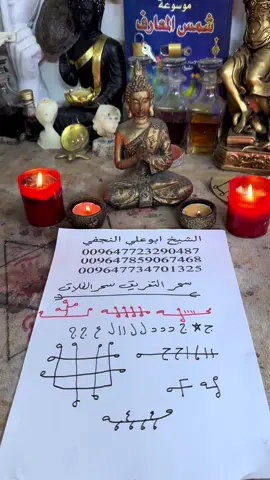 موسوعة
شمس المعارف
الشيخ ابوعلي النجفي
009647723290487
009647859067468
009647734701325
سحر التفريق سحر الطلاق